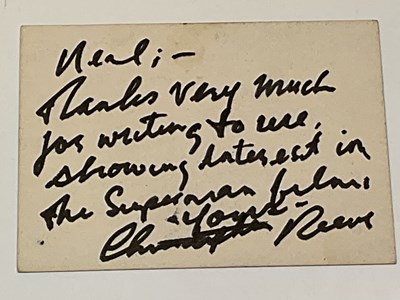 Neal;-
Thanks very much
for writing to me,
showing interest in
the Superman films
Yours-
Christopher Reeve